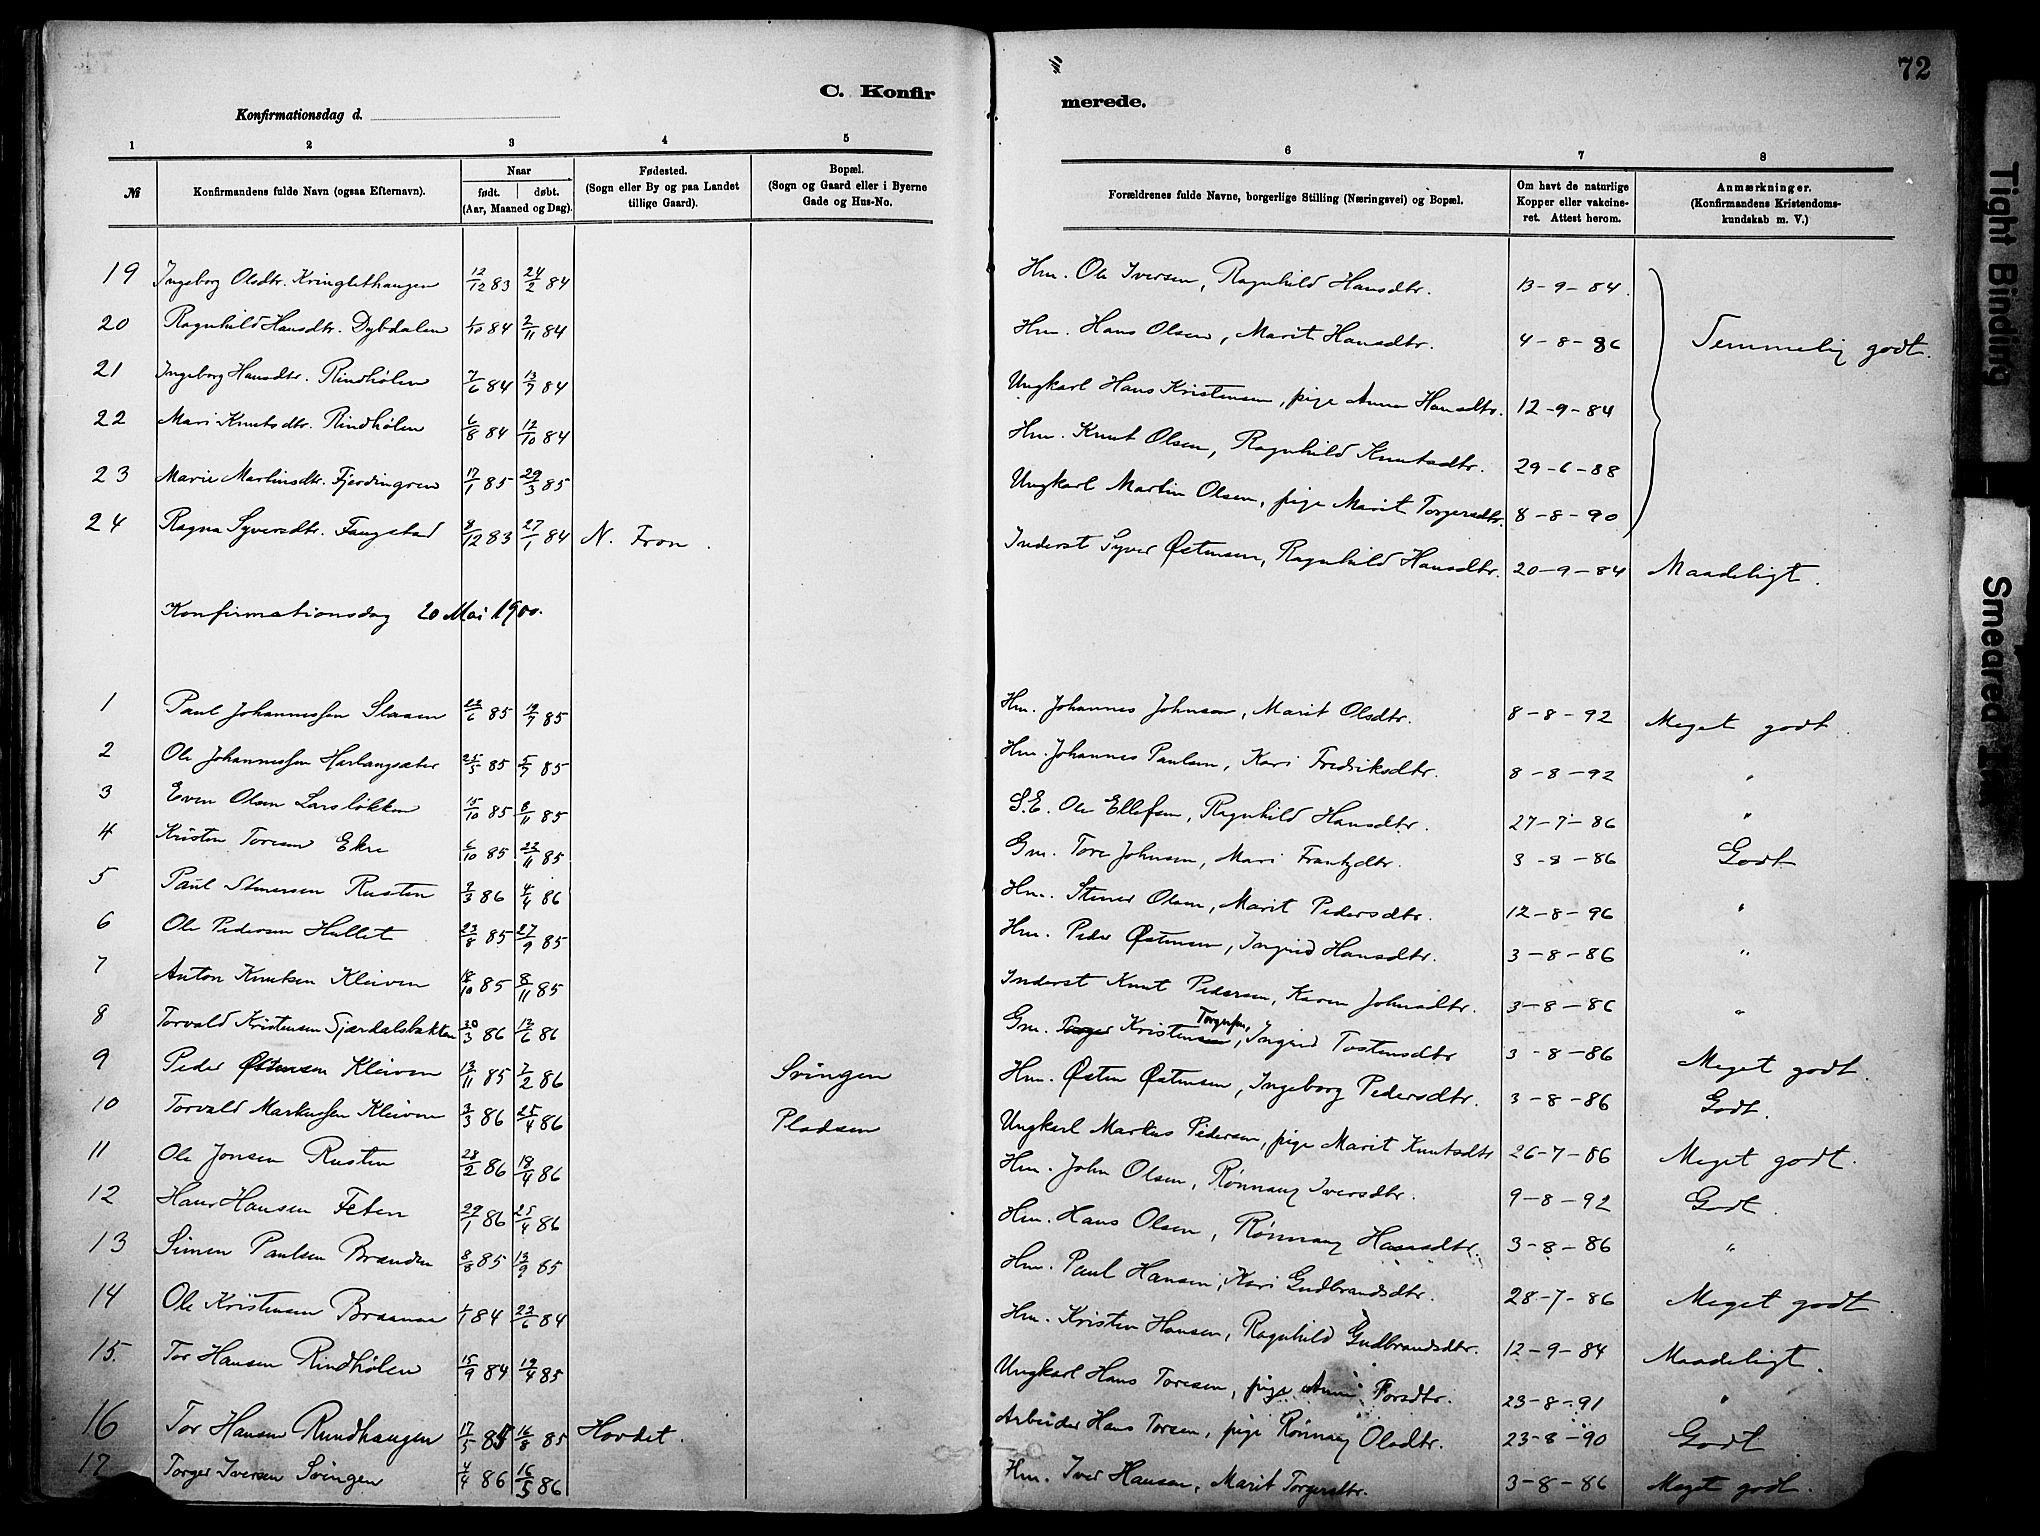 C. Konfirmerede.
72
Konfirmationsdag d.
1 2 3 4 5 6 7 8
№ Konfirmandens fulde Navn (ogsaa Efternavn). Naar født. døbt. (Aar, Maaned og Dag). Fødested. (Sogn eller By og paa Landet tillige Gaard). Bopæl. (Sogn og Gaard eller i Byerne Gade og Hus-No. Forældrenes fulde Navne, borgerlige Stilling (Næringsvei) og Bopæl. Om havt de naturlige Kopper eller vakcineret. Attest herom. Anmærkninger. (Konfirmandens Kristendomskundskab m. V.)
19 Ingeborg Olsdtr. Kringlethaugen 12/12 83 24/2 84 Hm. Ole Iversen, Ragnhild Hansdtr. 13-9-84.
20 Ragnhild Hansdtr. Dybdalen 1/10 84 2/11 84 Hm. Hans Olsen, Marit Hansdtr. 4-8-86 Temmelig godt.
21 Ingeborg Hansdtr. Rindhølen 7/6 84 13/7 84 Ungkarl Hans Kristensen, pige Anne Hansdtr. 12-9-84
22 Mari Knutsdtr. Rindhølen 6/8 84 12/10 84 Hm. Knut Olsen, Ragnhild Knutsdtr. 29-6-88
23 Marie Martinsdtr. Fjerdingren 17/1 85 29/3 85 Ungkarl Martin Olsen, pige Marit Torgersdtr. 8-8-90
24 Ragna Syversdtr. Fangstad 8/12 83 27/1 84 N. Fron. Inderst Syver Østensen, Ragnhild Hansdtr. 20-9-84 Maadeligt.
Konfirmationsdag 20 Mai 1900.
1 Paul Johannessen Slaaen 22/6 85 19/7 85 Hm. Johannes Johnsen, Marit Olsdtr. 8-8-92 Meget godt.
2 Ole Johannessen Harlaugsæter 25/5 85 5/7 85 Hm. Johannes Paulsen, Kari Fredriksdtr. 8-8-92 "
3 Even Olsen Larsløkken 15/10 85 8/11 85 S.E. Ole Ellefsen, Ragnhild Hansdtr. 27-7-86 "
4 Kristen Toresen Ekre 6/10 85 22/11 85 Gm. Tore Johnsen, Mari Frantzdtr. 3-8-86 Godt
5 Paul Stenersen Rusten 2/3 86 4/4 86 Hm. Stener Olsen, Marit Pedersdtr. 12-8-96 "
6 Ole Pedersen Hullet 23/8 85 27/9 85 Hm. Peder Østensen, Ingrid Hansdtr. 3-8-86 "
7 Anton Knutsen Kleiven 18/10 85 8/11 85 Inderst Knut Pedersen, Karen Johnsdtr. 3-8-86 "
8 Torvald Kristensen Sjærdalsbakken 30/3 86 12/6 86 Gm. Kristen Torgersen, Ingrid Tostensdtr 3-8-86 Meget godt.
9 Peder Østensen Kleiven 13/11 85 7/2 86 Svingen Hm. Østen Østensen, Ingeborg Pedersdtr. 3-8-86 Godt.
10 Torvald Markussen Kleiven 3/3 86 25/4 86 Pladsen Ungkarl Markus Pedersen, pige Marit Knutsdtr 26-7-86 Meget godt.
11 Ole Jonsen Rusten 28/2 86 18/4 86 Hm. John Olsen, Rønnaug Iversdtr. 9-8-92 Godt.
12 Hans Hansen Feten 29/1 86 25/4 86 Hm. Hans Olsen, Rønnaug Hansdtr. 3-8-86 "
13 Simen Paulsen Brænden 8/8 85 13/9 85 Hm. Paul Hansen, Kari Gudbrandsdtr. 28-7-86 Meget godt.
14 Ole Kristensen 1/1 84 22/6 84 Hm. Kristen Hansen, Ragnhild Gudbrandsdtr. 12-9-84 Maadeligt.
15. Tor Hansen Rindhølen 15/9 84 19/4 85 Ungkarl Hans Toresen, pige Anne Torsdtr. 23-8-91 "
16 Tor Hansen Rundhaugen 17/5 85 16/8 85 Hovdet. Arbeider Hans Torsen, pige Rønnaug Olsdtr. 23-8-90 Godt
17 Torger Iversen Svingen 4/4 86 16/5 86 Hm. Iver Hansen, Marit Torgersdtr. 3-8-86 Meget godt.
Tight Binding
Smeared